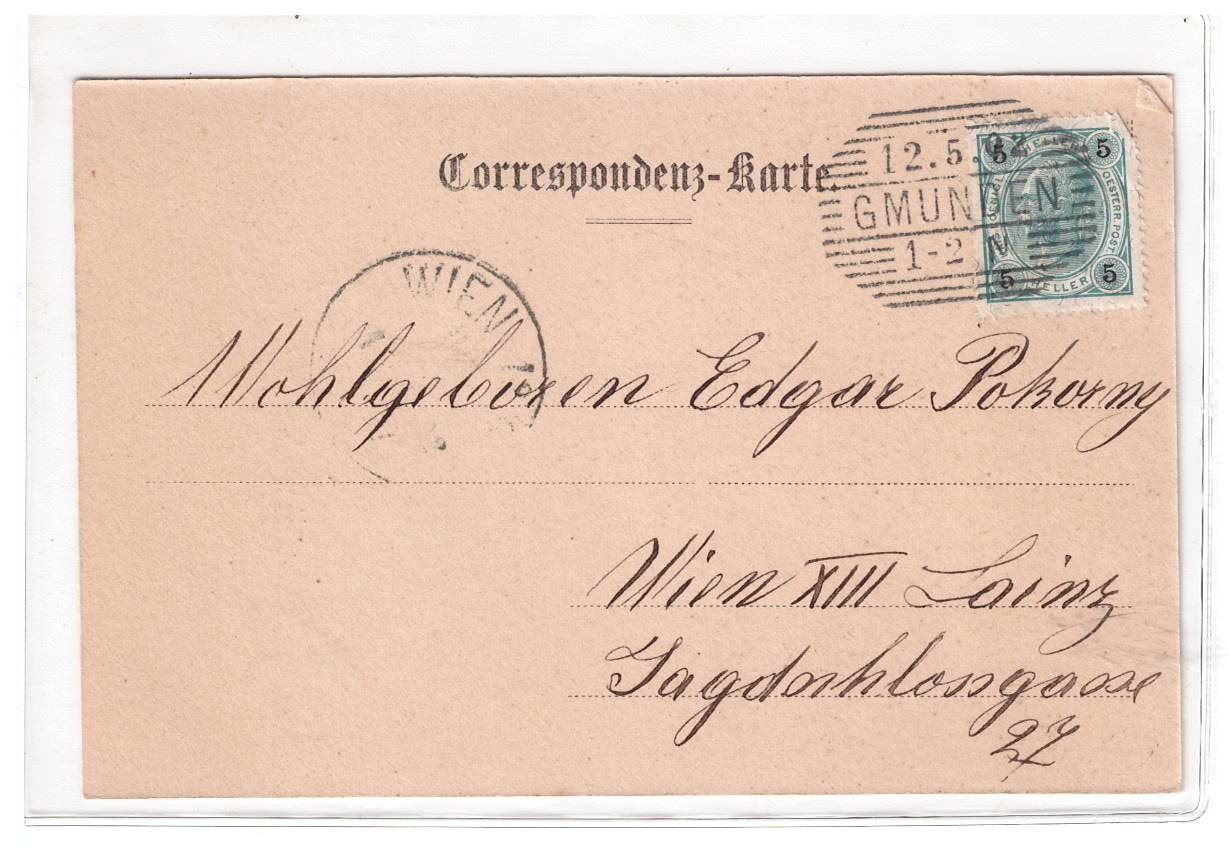 Correspondenz-Karte.
12.5.02
GMUNDEN
1-2 N
5 HELLER 5
OESTERR. POST.
5 HELLER 5
WIEN
Wohlgeboren Edgar Pokorny
Wien XIII Lainz
Jagdschlossgasse
27